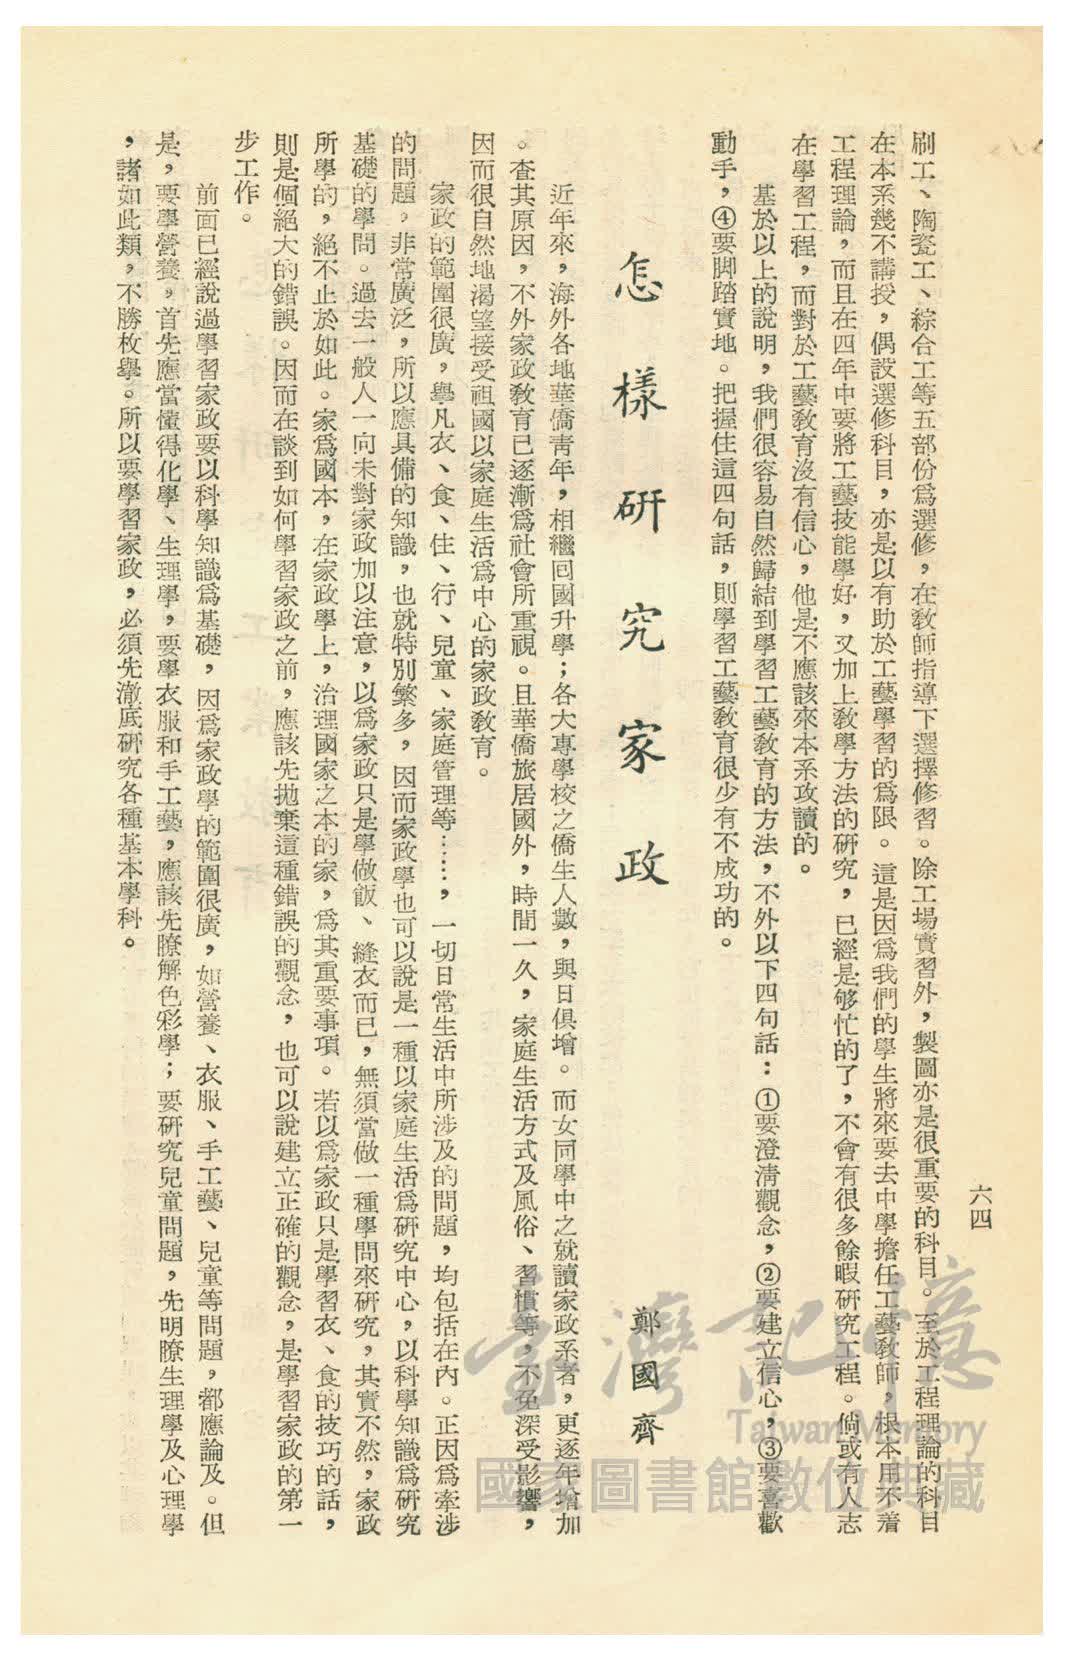 六四
刷工、陶瓷工、綜合工等五部份爲選修，在敎師指導下選擇修習。除工場實習外，製圖亦是很重要的科目。至於工程理論的科目
在本系幾不講授，偶設選修科目，亦是以有助於工藝學習的爲限。這是因爲我們的學生將來要去中學擔任工藝敎師，根本用不着
工程理論，而且在四年中要將工藝技能學好，又加上敎學方法的硏究，已經是够忙的了，不會有很多餘暇硏究工程。倘或有人志
在學習工程，而對於工藝敎育沒有信心，他是不應該來本系攻讀的。
基於以上的說明，我們很容易自然歸結到學習工藝敎育的方法，不外以下四句話：①要澄淸觀念，②要建立信心，③要喜歡
動手，④要脚踏實地。把握住這四句話，則學習工藝敎育很少有不成功的。
怎樣硏究家政
鄭國齊
近年來，海外各地華僑靑年，相繼囘國升學；各大專學校之僑生人數，與日俱增。而女同學中之就讀家政系者，更逐年增加
。查其原因，不外家政敎育已逐漸爲社會所重視。且華僑旅居國外，時間一久，家庭生活方式及風俗、習慣等，不免深受影響，
因而很自然地渴望接受祖國以家庭生活爲中心的家政敎育。
家政的範圍很廣，舉凡衣、食、住、行、兒童、家庭管理等……，一切日常生活中所涉及的問題，均包括在內。正因爲牽涉
的問題，非常廣泛，所以應具備的知識，也就特別繁多，因而家政學也可以說是一種以家庭生活爲硏究中心，以科學知識爲硏究
基礎的學問。過去一般人一向未對家政加以注意，以爲家政只是學做飯、縫衣而已，無須當做一種學問來硏究，其實不然，家政
所學的，絕不止於如此。家爲國本，在家政學上，治理國家之本的家，爲其重要事項。若以爲家政只是學習衣、食的技巧的話，
則是個絕大的錯誤。因而在談到如何學習家政之前，應該先拋棄這種錯誤的觀念，也可以說建立正確的觀念，是學習家政的第一
步工作。
前面已經說過學習家政要以科學知識爲基礎，因爲家政學的範圍很廣，如營養、衣服、手工藝、兒童等問題，都應論及。但
是，要學營養，首先應當懂得化學、生理學，要學衣服和手工藝，應該先瞭解色彩學；要硏究兒童問題，先明瞭生理學及心理學
，諸如此類，不勝枚舉。所以要學習家政，必須先澈底硏究各種基本學科。
臺灣記憶
Taiwan Memory
國家圖書館數位典藏